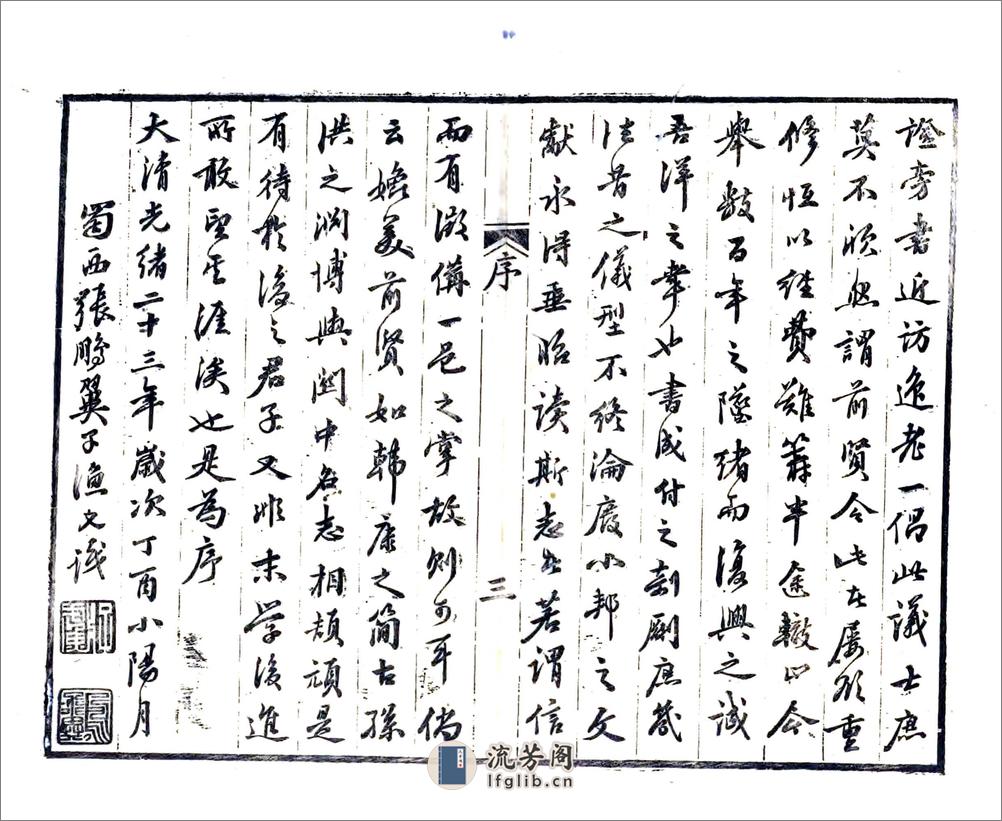 證旁書近訪逸老一倡此議士庶
莫不欣然謂前賢令此在屢欲重
修恒以經費難籌半途輟止今
舉數百年之墜緒而復興之誠
吾洋之幸也書成付之剞劂庶幾
法昔之儀型不終淪廢小邦之文
獻永得垂昭读斯志者若謂信
序
三
而有徵備一邑之掌故則可耳倘
云媲美前贤如韓康之簡古孫
洪之渊博與關中名志相頡頏是
有待於後之君子又非末學後進
所敢望其涯涘也是為序
大清光緒二十三年歲次丁酉小陽月
蜀西張鵬翼子漁父識
流芳阁
lfglib.cn